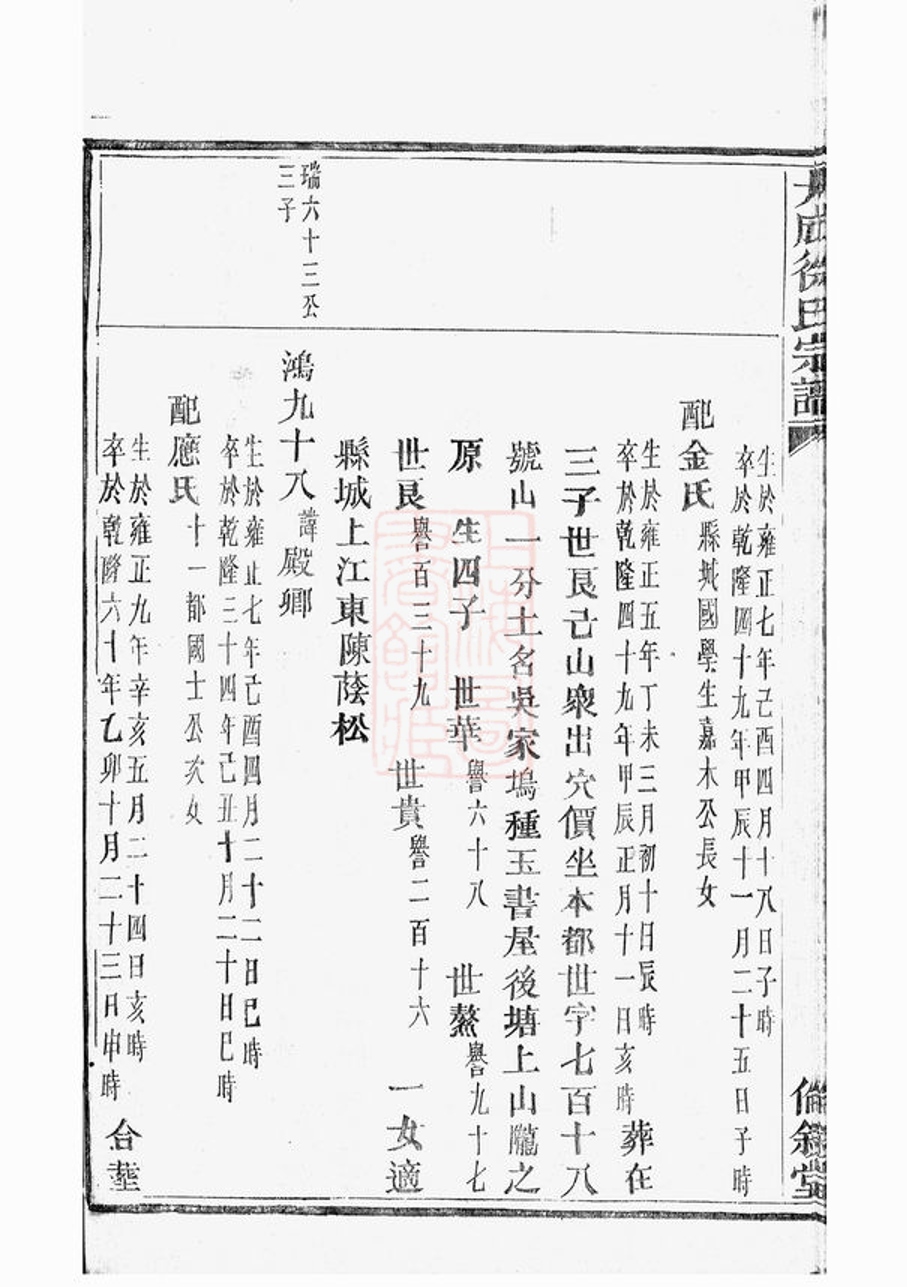 徐氏宗譜
倫敘堂
生於雍正七年己酉四月十八日子時
卒於乾隆四十九年甲辰十一月二十五日子時
配金氏縣城國學生嘉木公長女
生於雍正五年丁未三月初十日辰時
卒於乾隆四十九年甲辰正月十一日亥時
葬在
三子世艮己山衆出穴價坐本都世字七百十八
號山一分土名吳家塢種玉書屋後塘上山隴之
原 生四子 世華譽六十八 世鰲譽九十七
世艮譽百三十九 世貴譽二百十六 一女適
縣城上江東陳蔭松
瑞六十三公
三子
鴻九十八諱殿卿
生於雍正七年己酉四月二十二日巳時
卒於乾隆三十四年己丑十月二十日巳時
配應氏十一都國士公次女
生於雍正九年辛亥五月二十四日亥時
卒於乾隆六十年乙卯十月二十三日申時
合塟